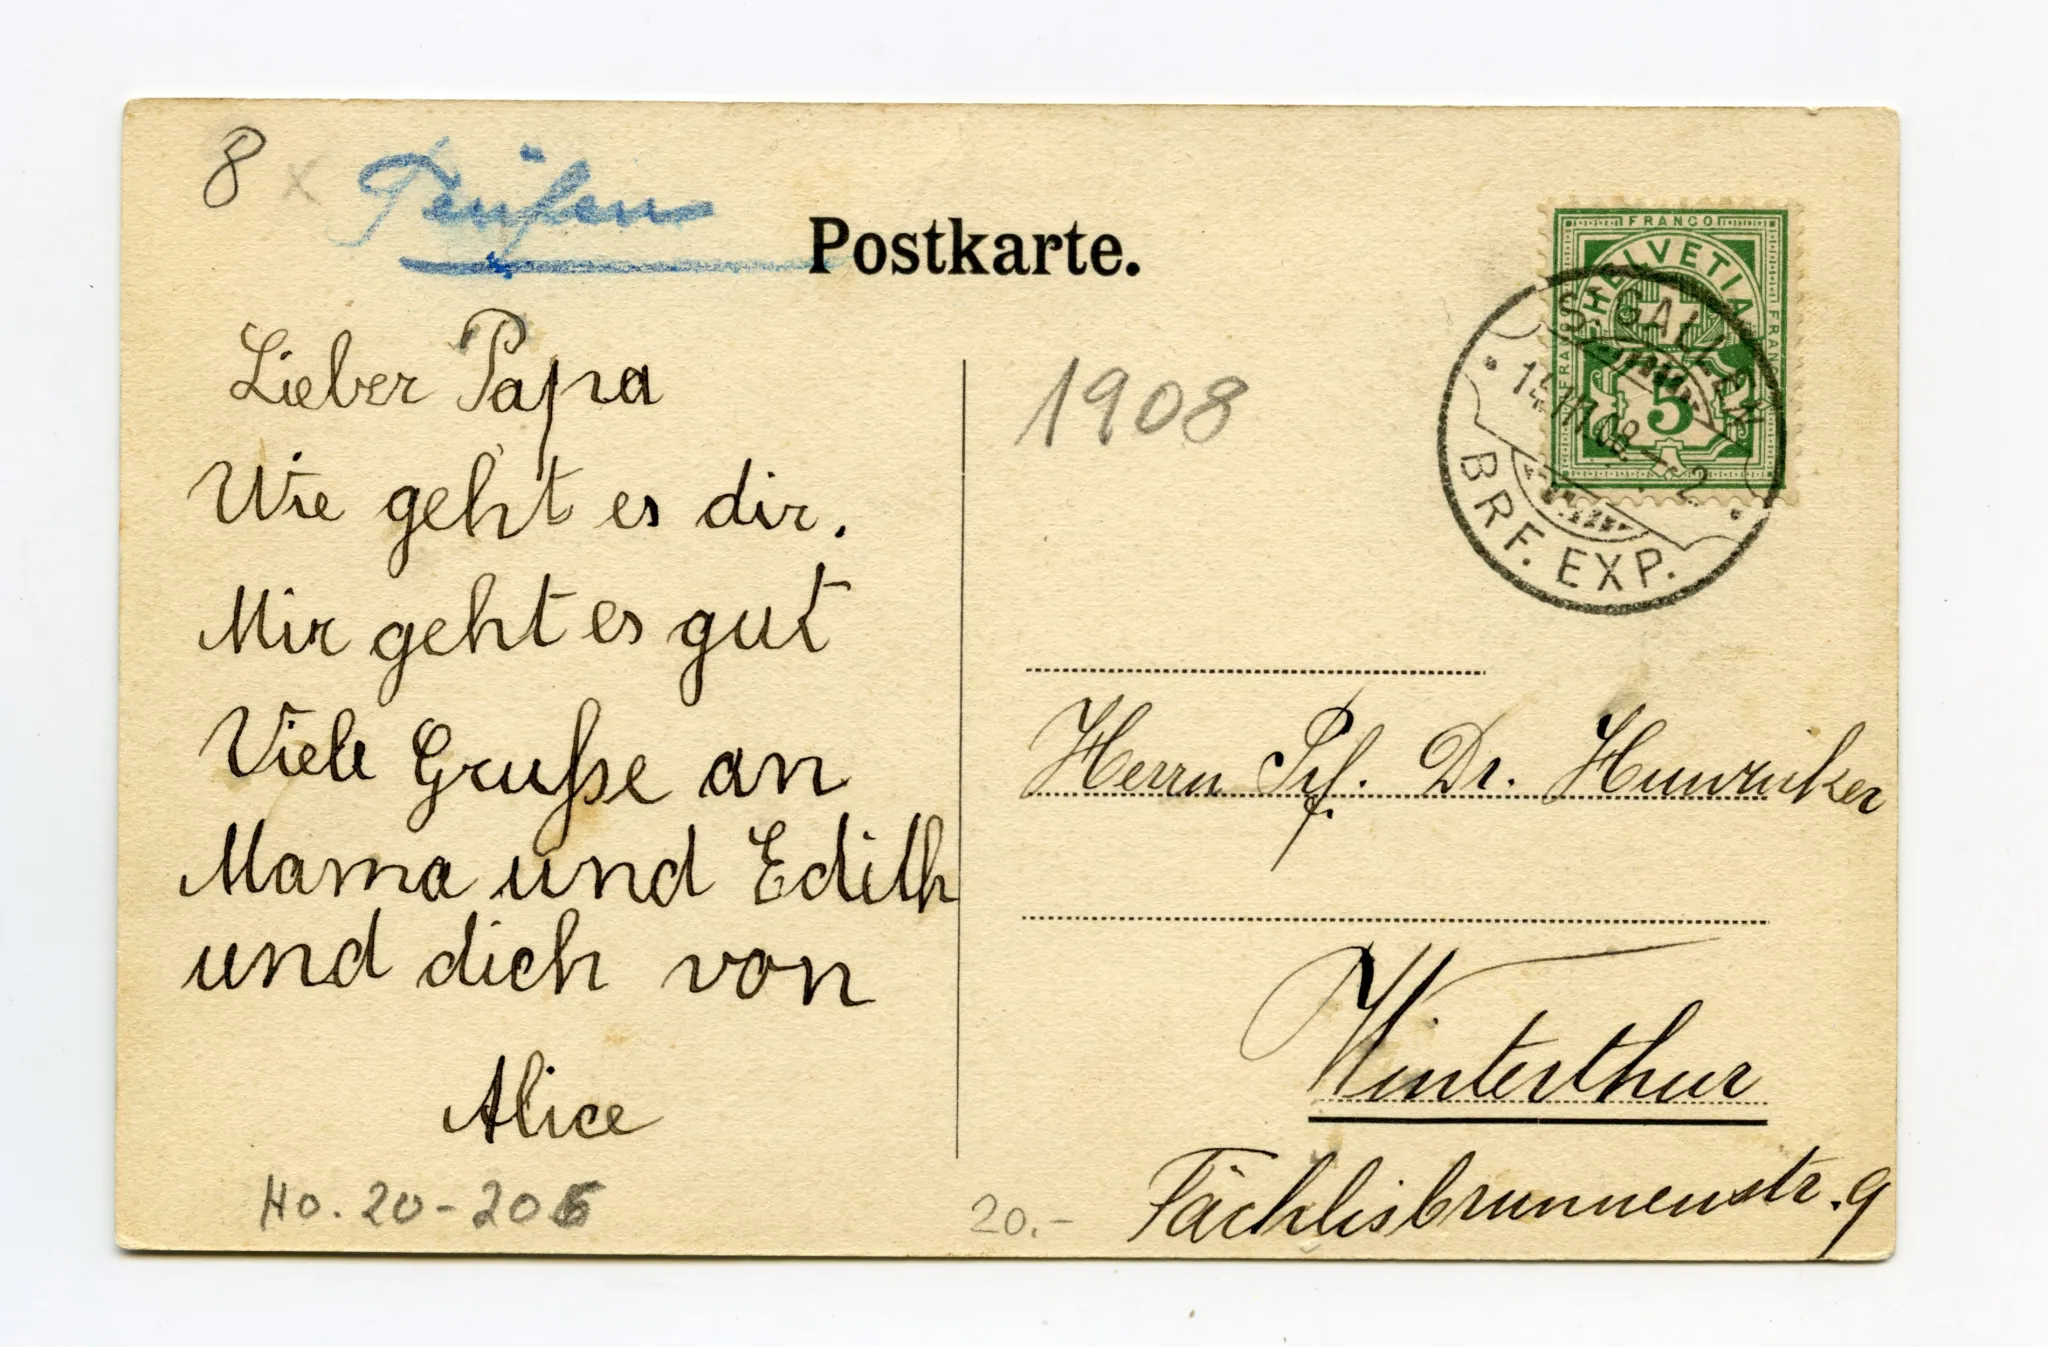 8 x Teufen
Postkarte.
FRANCO
HELVETIA
FRANCO
FRANCO
5
ST. GALLEN
14.VII.08. - 2
BRF. EXP.
1908
Lieber Papa
Wie geht es dir.
Mir geht es gut
Viele Grusse an
Mama und Edith
und dich von
Alice
Ho. 20-206
20.-
Herrn Prf. Dr. Hunzicker
Winterthur
Fächlisbrunnenstr. 9